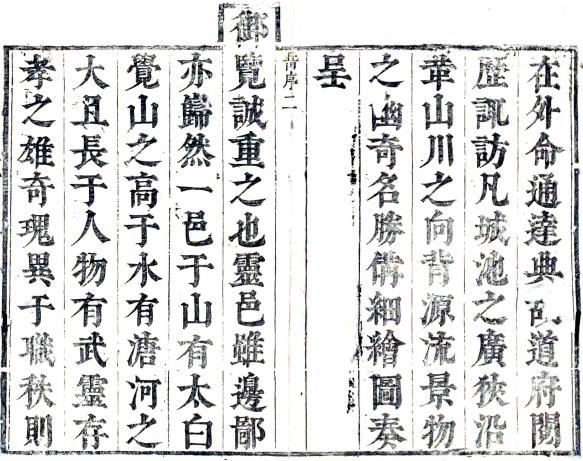 在外命通達典道府閱
歷諏訪凡城池之廣狹沿
革山川之向背源流景物
之幽奇名勝備細繪圖奏
呈
序二
御覽誠重之也靈邑雖邊鄙
亦巋然一邑于山有太白
覺山之高于水有溏河之
大且長于人物有武靈存
孝之雄奇瑰異于職秩則